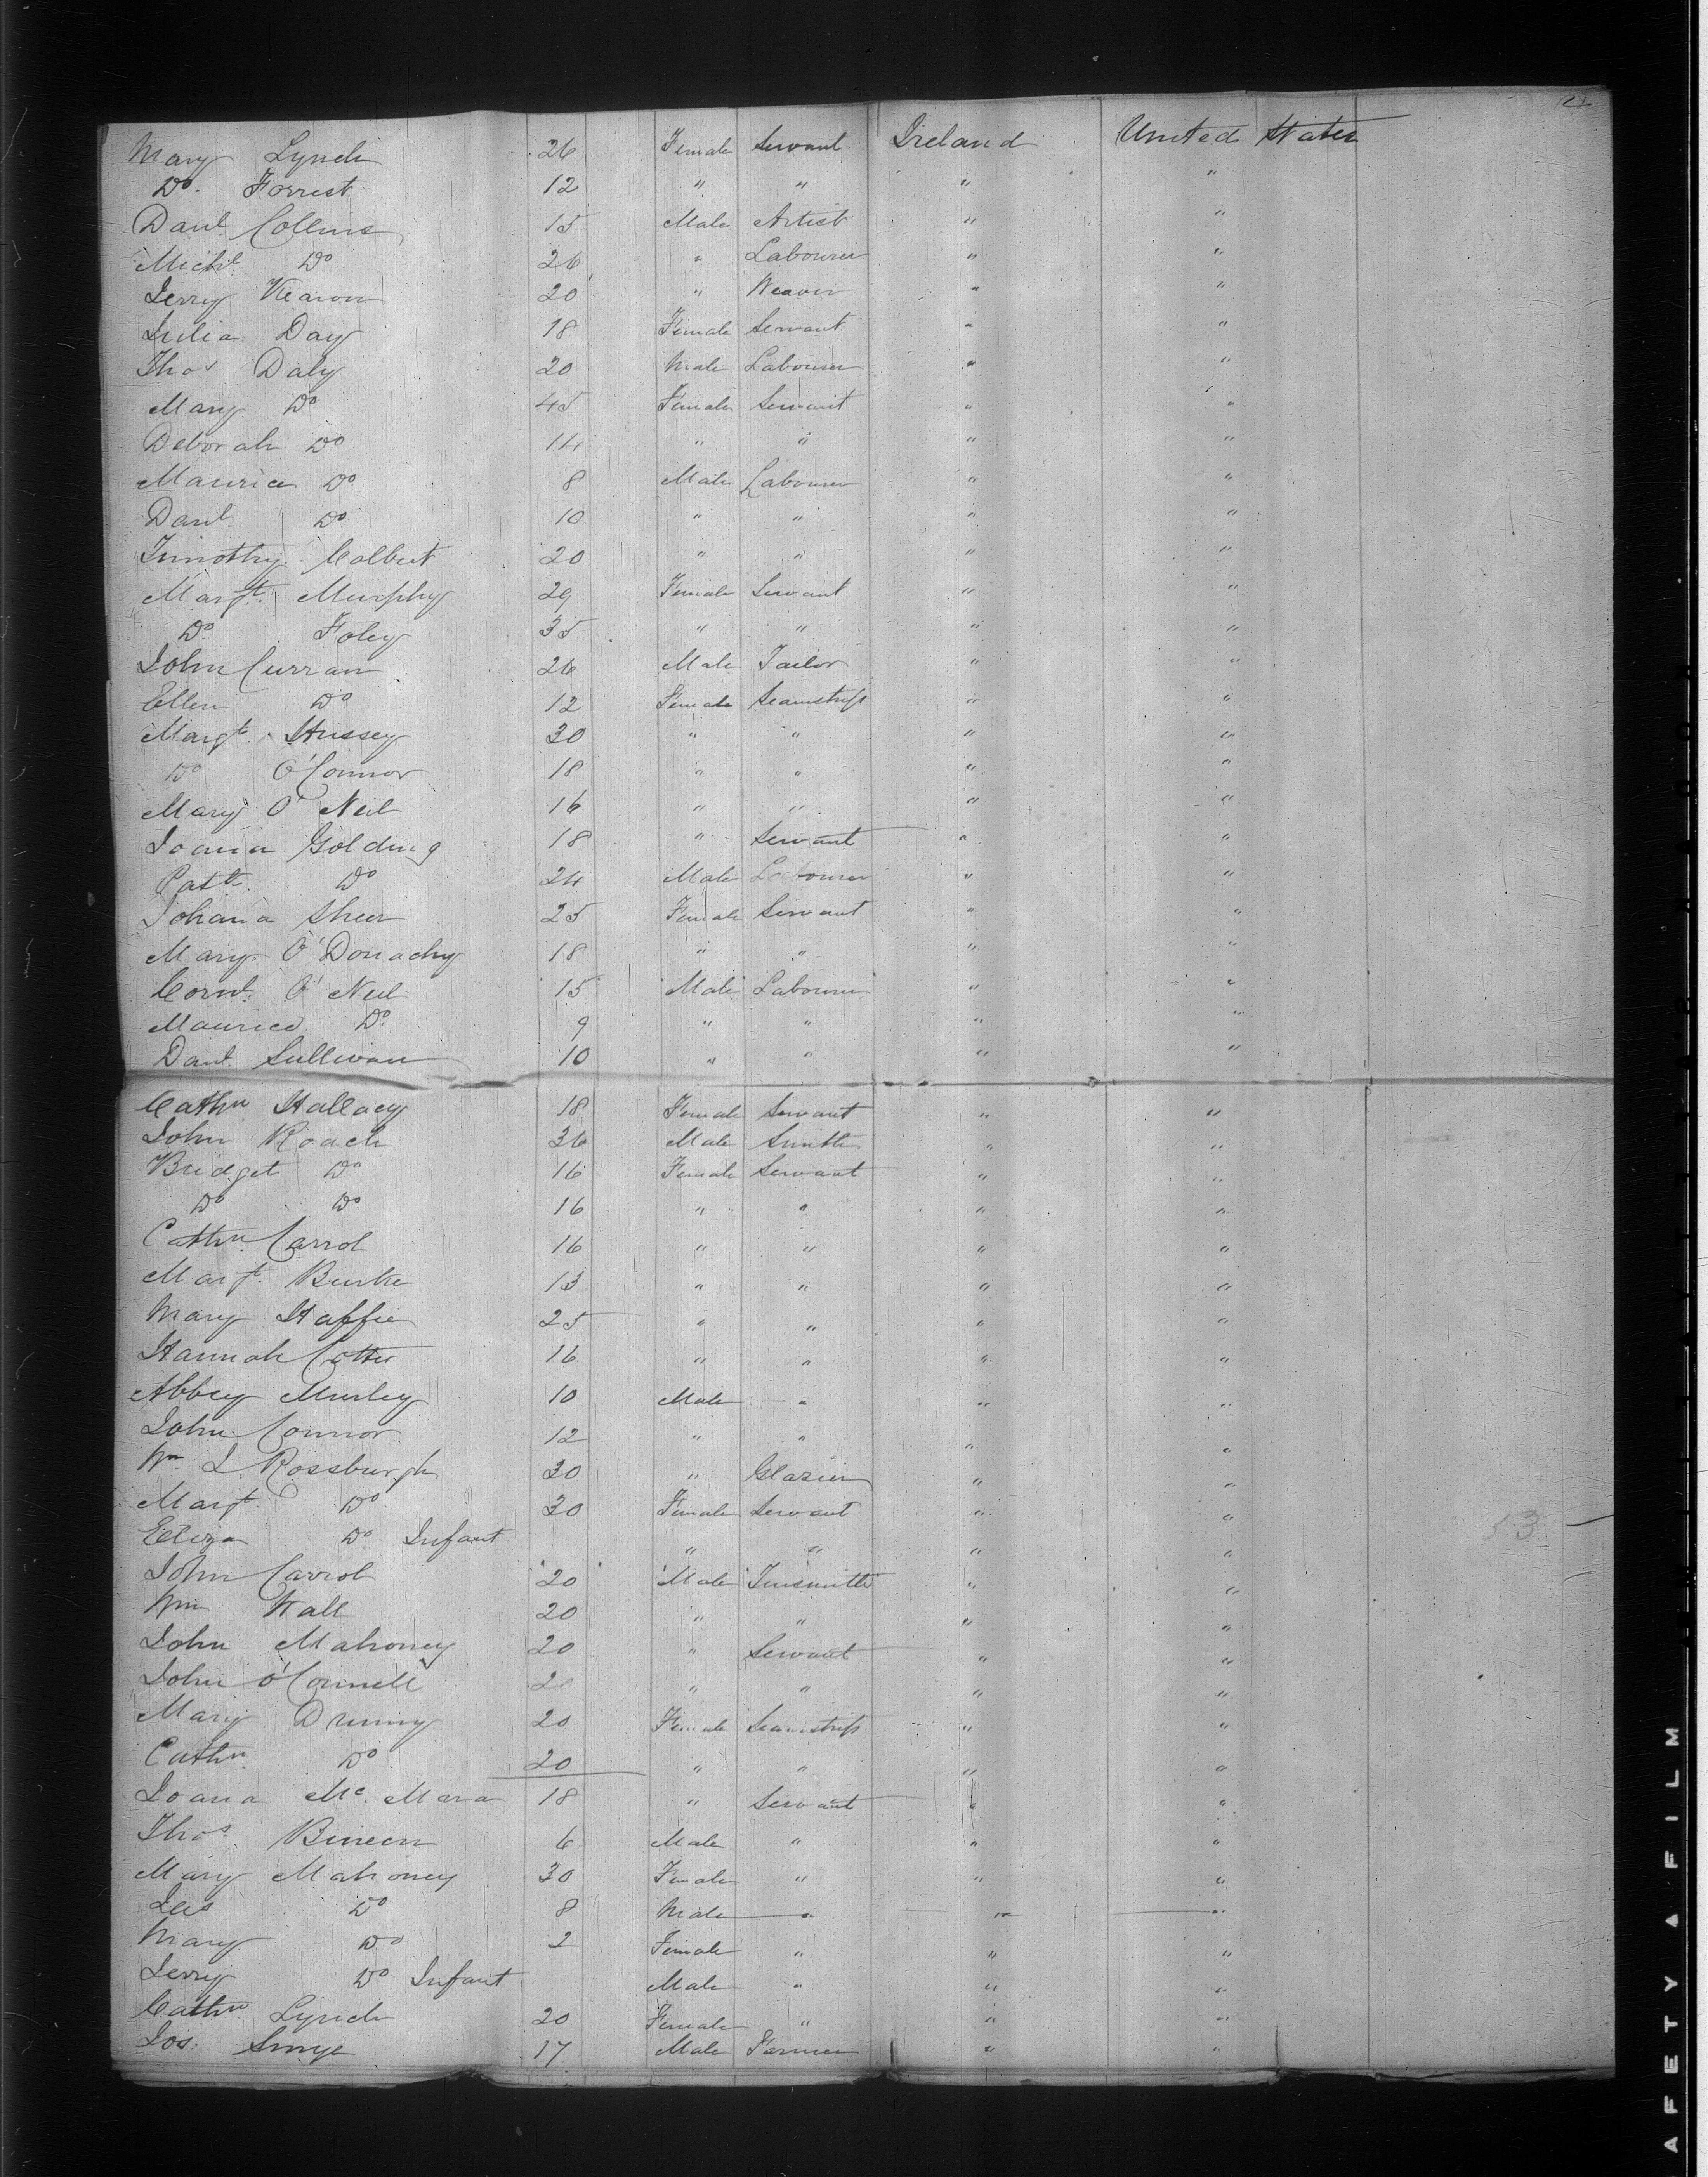 Mary Lynch 26 Female Servant Ireland United States
Do. Forrest 12 " " " "
Danl. Collins 15 Male Artist " "
Michl. Do 26 " Labourer " "
Jerry Kearon 20 " Weaver " "
Julia Day 18 Female Servant " "
Thos Daly 20 Male Labourer " "
Mary Do 45 Female Servant " "
Deborah Do 14 " " " "
Maurice Do 8 Male Labourer " "
Danl. Do 10 " " " "
Timothy Colbert 20 " " " "
Margt. Murphy 29 Female Servant " "
Do Foley 35 " " " "
John Curran 26 Male Tailor " "
Ellen Do 12 Female Seamstress " "
Margt. Hussey 30 " " " "
Do O'Connor 18 " " " "
Mary O'Neil 16 " " " "
Joana Golding 18 " Servant " "
Patk. Do 24 Male Labourer " "
Johana Sheer 25 Female Servant " "
Mary O'Donachy 18 " " " "
Cornl. O'Neil 15 Male Labourer " "
Maurice Do. 9 " " " "
Danl. Sullivan 10 " " " "
Cathn Hallacy 18 Female Servant " "
John Roach 36 Male Smith " "
Bridget Do 16 Female Servant " "
Do Do 16 " " " "
Cathn. Carrol 16 " " " "
Margt. Burke 13 " " " "
Mary Haffie 25 " " " "
Hannah Cotter 16 " " " "
Abbey Murley 10 Male " " "
John Connor 12 " " " "
Wm L Rossburgh 30 " Glazier " "
Margt. Do 30 Female Servant " "
Eliza Do Infant " " " "
John Carrol 20 Male Tinsmith " "
Wm Wall 20 " " " "
John Mahoney 20 " Servant " "
John O'Connell 20 " " " "
Mary Drumy 20 Female Seamstress " "
Cathn. Do 20 " " " "
Joana Mc. Mara 18 " Servant " "
Thos. Bineen 6 Male " " "
Mary Mahoney 30 Female " " "
Jas Do 8 Male " " "
Mary Do 2 Female " " "
Jerry Do Infant Male " " "
Cathn Lynch 20 Female " " "
Jos. Smye 17 Male Farmer " "
AFETY A FILM